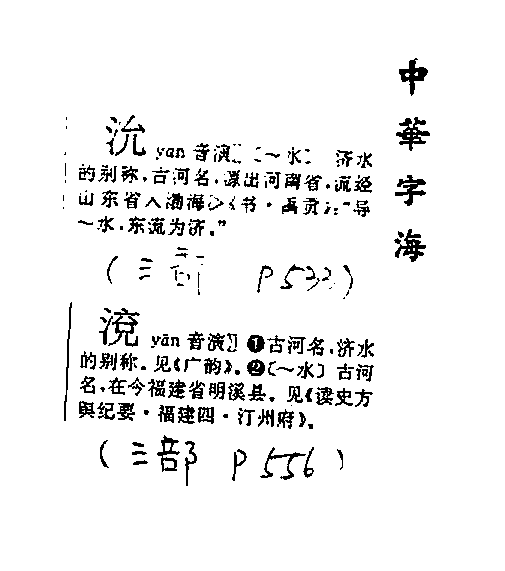 中華字海
沇 yǎn 音演〗〔～水〕 济水
的别称，古河名，源出河南省，流经
山东省入渤海。《书·禹贡》：“导
～水，东流为济。”
(氵部 P533)
渷 yǎn 音演〗❶古河名，济水
的别称。见《广韵》。❷〔～水〕古河
名，在今福建省明溪县。见《读史方
舆纪要·福建四·汀州府》。
(氵部 P556)